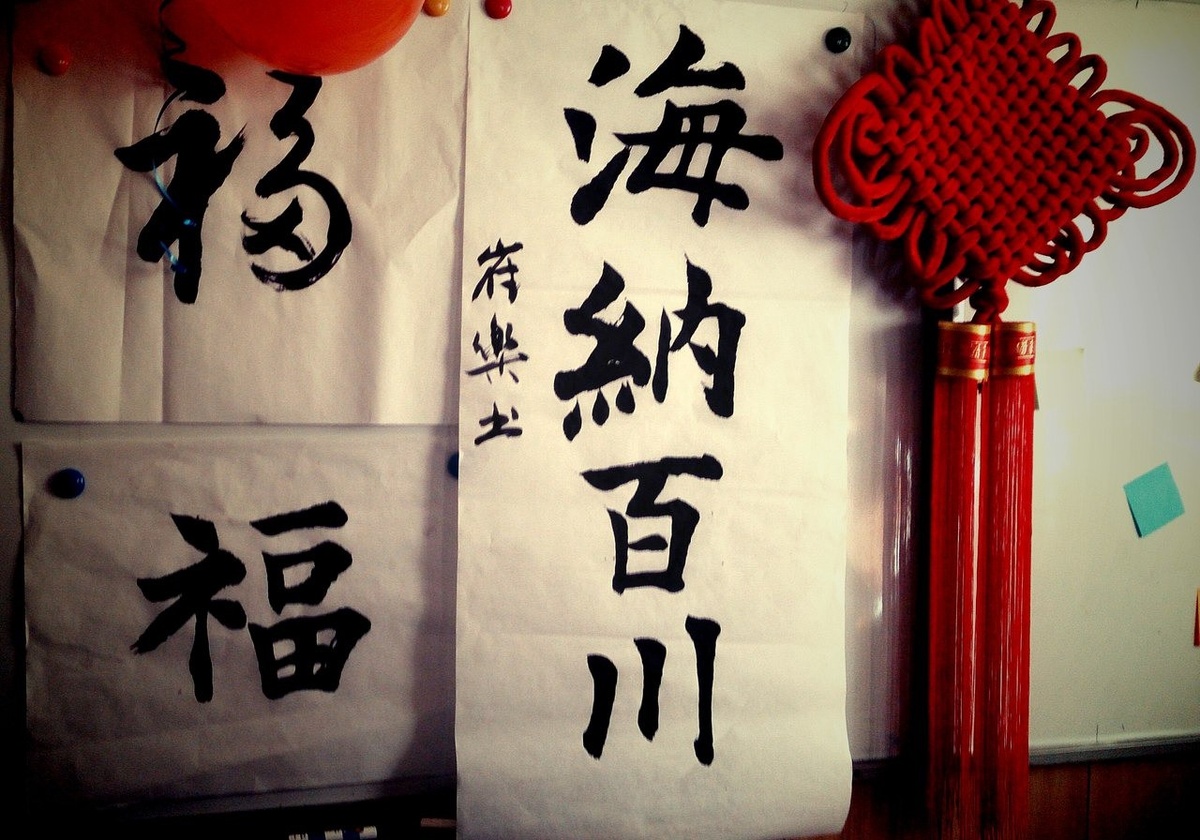 海納百川
崔樂土
福
福